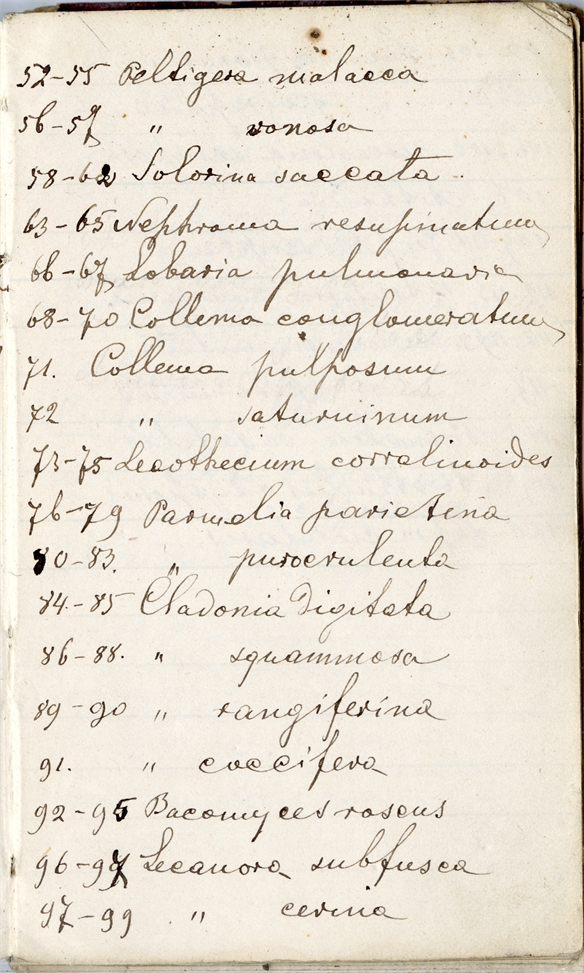 52-55 Peltigera malacea
56-57 " venosa
58-62 Solorina saccata.
63-65 Nephroma resupinatum
66-67 Lobaria pulmonaria
68-70 Collema conglomeratum
71. Collema pulposum
72 " saturninum
73-75 Lecothecium corralinoides
76-79 Parmelia parietina
80-83. " purverulenta
84.-85 Cladonia digitata
86-88. " squammosa
89-90 " rangiferina
91. " coccifera
92-95 Bacomyces roseus
96-97 Lecanora subfusca
97-99 " cerina